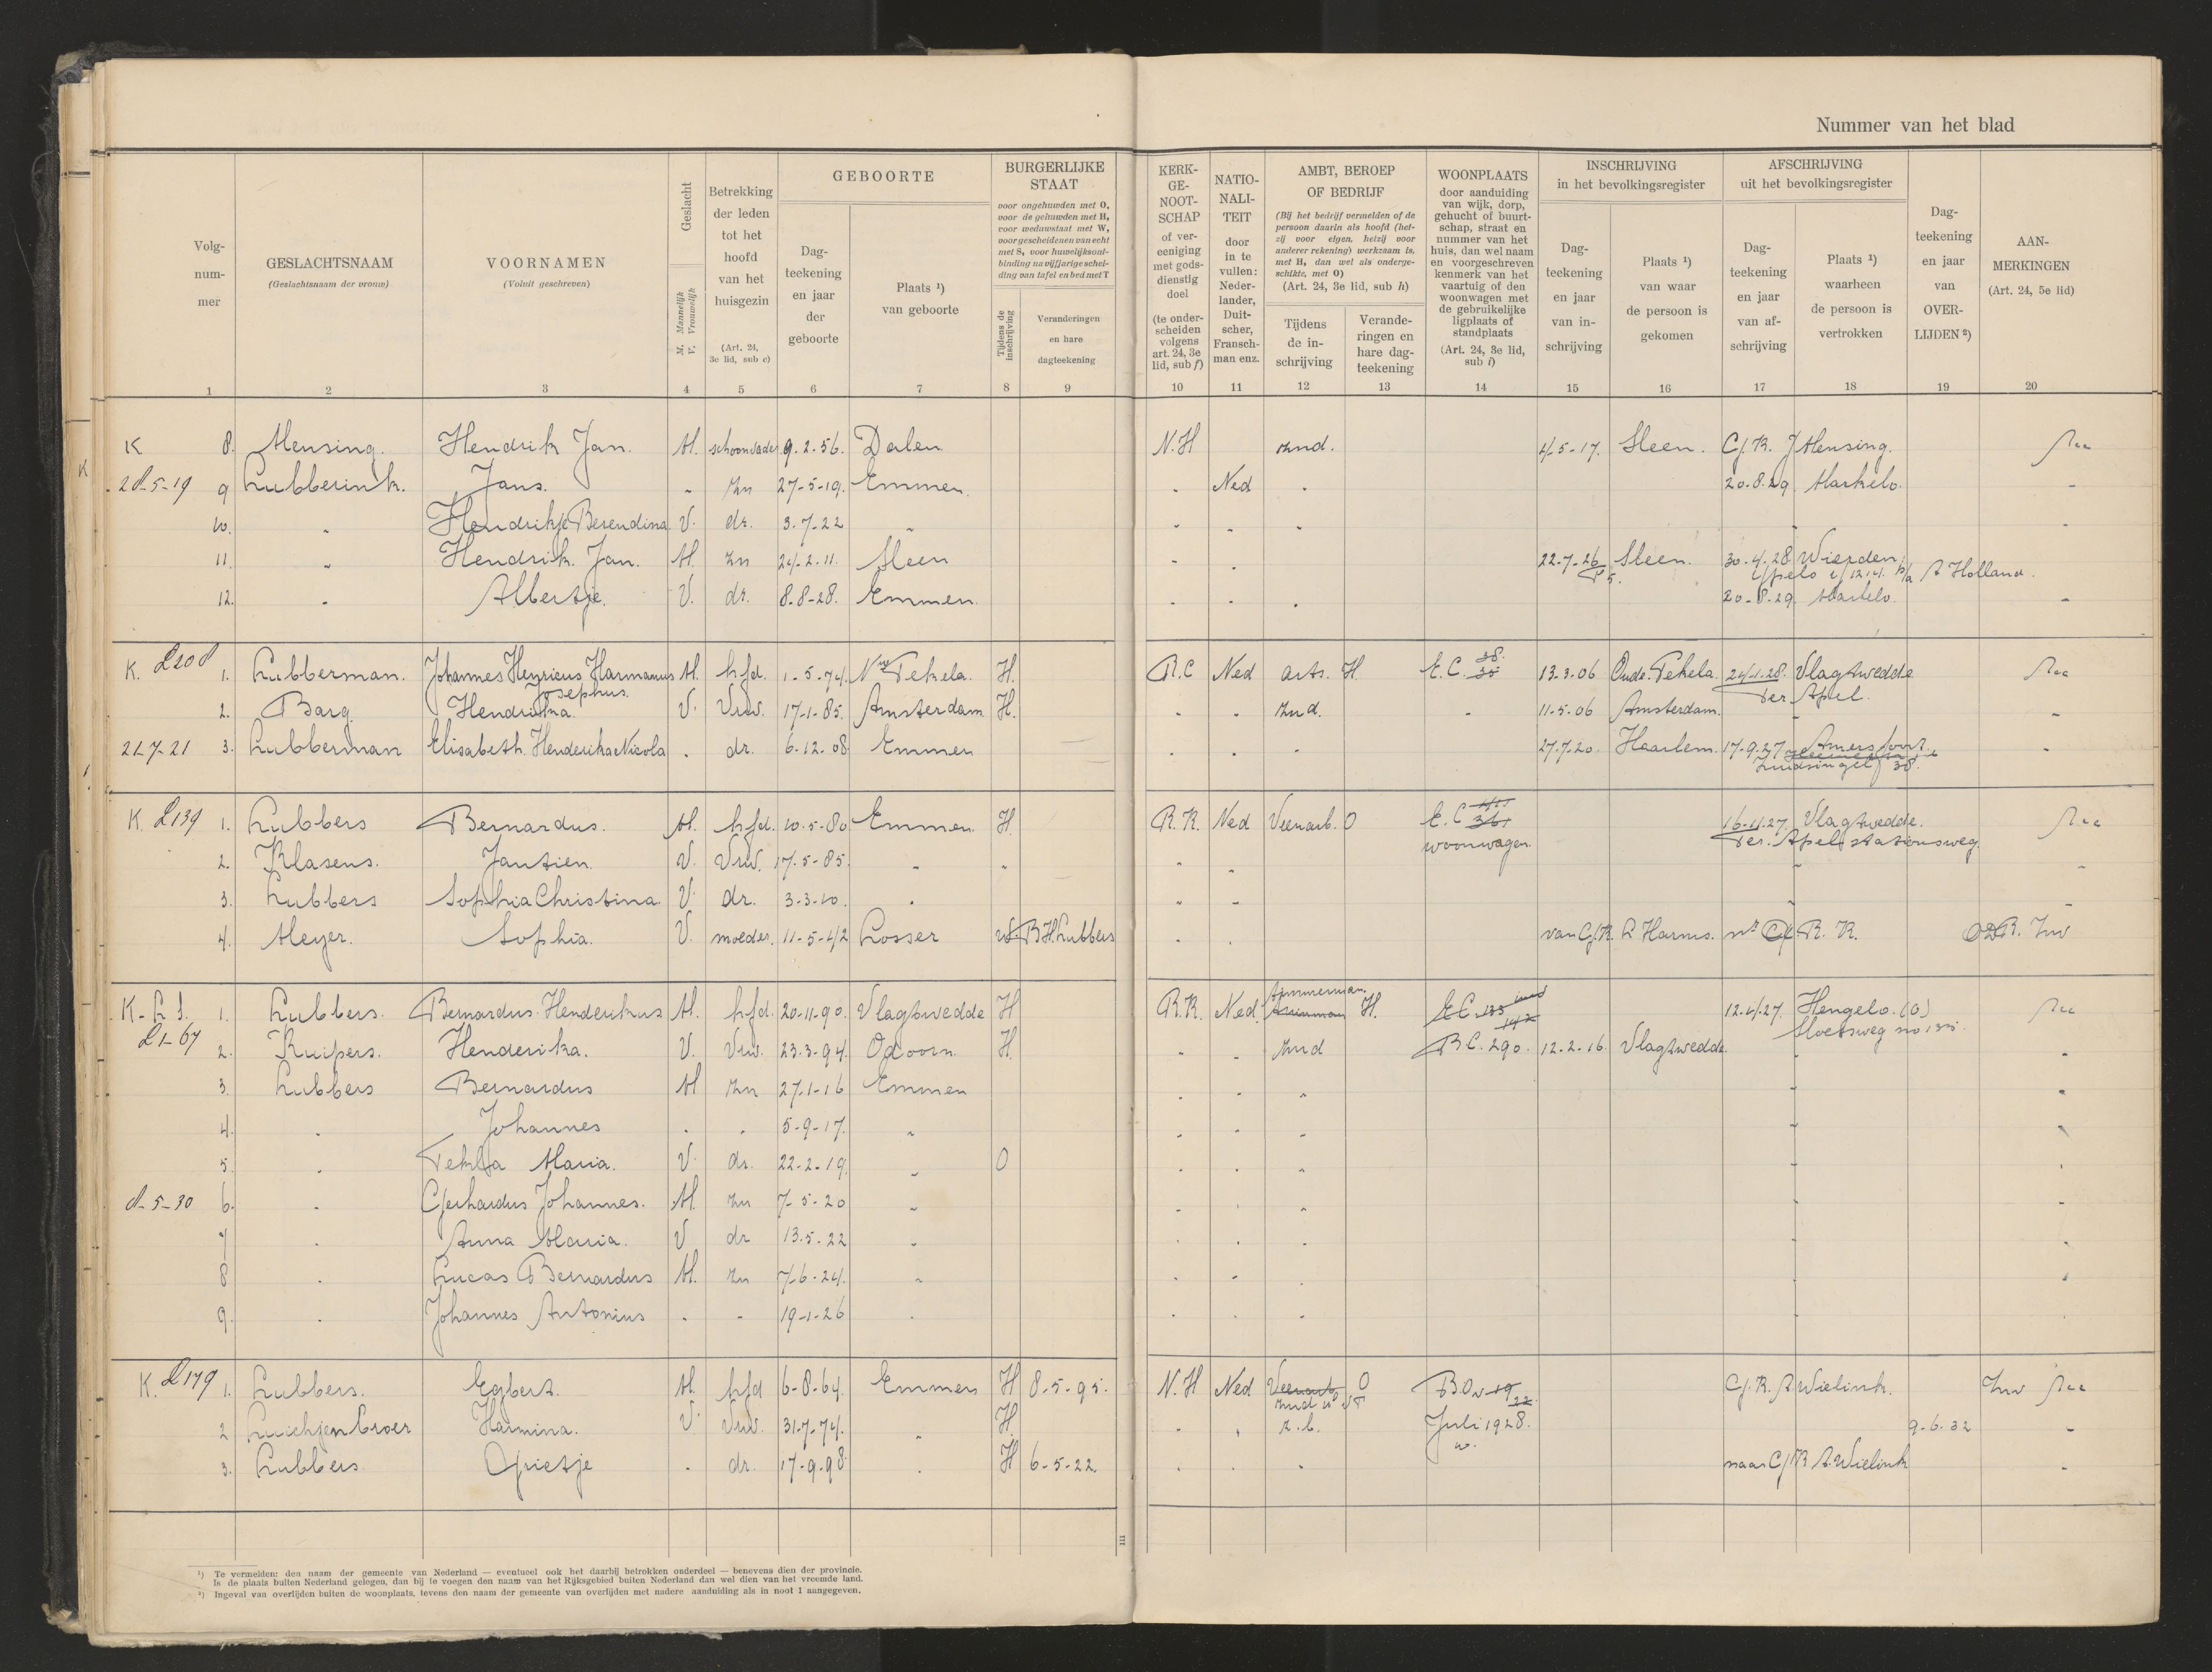 Nummer van het blad
Volg-
num-
mer
GESLACHTSNAAM
(Geslachtsnaam der vrouw)
VOORNAMEN
(Voluit geschreven)
Geslacht
M. Mannelijk
V. Vrouwelijk
Betrekking
der leden
tot het
hoofd
van het
huisgezin
(Art. 24,
3e lid, sub c)
GEBOORTE
Dag-
teekening
en jaar
der
geboorte
Plaats ¹)
van geboorte
BURGERLIJKE
STAAT
voor ongehuwden met O,
voor de gehuwden met H,
voor weduwstaat met W,
voor gescheidenen van echt
met S, voor huwelijksont-
binding na vijfjarige schei-
ding van tafel en bed met T
Tijdens de
inschrijving
Veranderingen
en hare
dagteekening
KERK-
GE-
NOOT-
SCHAP
of ver-
eeniging
met gods-
dienstig
doel
(te onder-
scheiden
volgens
art. 24, 3e
lid, sub f)
NATIO-
NALI-
TEIT
door
in te
vullen:
Neder-
lander,
Duit-
scher,
Fransch-
man enz.
AMBT, BEROEP
OF BEDRIJF
(Bij het bedrijf vermelden of de
persoon daarin als hoofd (het-
zij voor eigen, hetzij voor
anderer rekening) werkzaam is,
met H, dan wel als onderge-
schikte, met O)
(Art. 24, 3e lid, sub h)
Tijdens
de in-
schrijving
Verande-
ringen en
hare dag-
teekening
WOONPLAATS
door aanduiding
van wijk, dorp,
gehucht of buurt-
schap, straat en
nummer van het
huis, dan wel naam
en voorgeschreven
kenmerk van het
vaartuig of den
woonwagen met
de gebruikelijke
ligplaats of
standplaats
(Art. 24, 3e lid,
sub i)
INSCHRIJVING
in het bevolkingsregister
Dag-
teekening
en jaar
van in-
schrijving
Plaats ¹)
van waar
de persoon is
gekomen
AFSCHRIJVING
uit het bevolkingsregister
Dag-
teekening
en jaar
van af-
schrijving
Plaats ¹)
waarheen
de persoon is
vertrokken
Dag-
teekening
en jaar
van
OVER-
LIJDEN ²)
AAN-
MERKINGEN
(Art. 24, 5e lid)
1 2 3 4 5 6 7 8 9 10 11 12 13 14 15 16 17 18 19 20
K 8. Mensing. Hendrik Jan. M. schoonvader 9.2.56. Dalen N.H znd. 4-5-17. Sleen. G.K. J Mensing.
K
28-5-19 9 Lubberink. Jans. " zn 27-5-19. Emmen. " Ned " 20.8.29 Markelo. "
10. " Hendrikje Berendina V. dr. 3.7.22 " " " " " "
11. " Hendrik Jan. M. zn 24.2.11. Sleen " " 22.7.26 Sleen. 30.4.28 Wierden
A Holland.
12. " Albertje. V. dr. 8.8-28. Emmen. " " " 20-8.29. Markelo. "
K. L208 1. Lubberman. Johannes Henricus Harmannus M. hfd. 1-5-74. Nw Pekela. H. R.C Ned arts. H. E.C. 38. 13.3.06 Oude.Pekela. 24-1.28. Vlagtwedde
Josephus. Ter Apel.
2. Barg. Hendrina. V. Vrw. 17-1-85. Amsterdam. H. " " znd. " 11-5-06 Amsterdam. "
21-7-21 3. Lubberman Elisabeth Henderika Nicola . dr. 6-12-08 Emmen " " " 27.7.20. Haarlem. 17-9.27 Amersfoort. "
Zuidsingel 38.
K. L139 1. Lubbers Bernardus. M. hfd. 10.5-80 Emmen. H. R.K. Ned Veenarb. O E.C 361 16-11.27 Vlagtwedde.
woonwagen. Ter. Apel stationsweg.
2. Klasens. Jantien. V. Vrw. 17.5-85. " " " " " "
3. Lubbers Sophia Christina. V. dr. 3-3-10. " " " " "
4. Meyer. Sophia. V. moeder. 11-5-42 Losser B H. Lubbers " " van G.K. R Harms. R. K. Inw
K. 1. Lubbers. Bernardus Henderikus M. hfd. 20-11-90. Vlagtwedde H R.K. Ned. timmerman. H. E.C. 133 12.4.27. Hengelo. (O)
L1-67 2. Kuipers. Henderika. V. Vrw. 23.3-94. Odoorn. H. " " znd B C. 290. 12-2-16. Vlagtwedde. " "
3. Lubbers Bernardus M zn 27-1-16 Emmen " " " " "
4. " Johannes " " 5-9-17. " " " " " "
5. " Tekla Maria. V. dr. 22-2-19. " O " " " " "
8-5-30 6. " Gerhardus Johannes. M. zn 7-5-20 " " " " " "
7 " Anna Maria. V dr 13.5-22 " " " " " "
8 " Lucas Bernardus M. zn 7-6-24. " " " " " "
9. " Johannes Antonius " " 19-1-26 " " " "
K. L179 1. Lubbers. Egbert. M. hfd 6-8-64. Emmen H 8-5-95. N.H Ned Veenarb O B.O.v 19 G.K. A Wielink. Inw
22
2 Luichjenbroer Harmina. V. Vrw. 31-7-74. " H. " " z.b. Juli 1928. 9-6-32 "
3. Lubbers. Grietje . dr. 17-9-98. . H 6-5-22. " " " naar GK A. Wielink "
III
¹) Te vermelden: den naam der gemeente van Nederland — eventueel ook het daarbij betrokken onderdeel — benevens dien der provincie.
Is de plaats buiten Nederland gelegen, dan bij te voegen den naam van het Rijksgebied buiten Nederland dan wel dien van het vreemde land.
²) Ingeval van overlijden buiten de woonplaats, tevens den naam der gemeente van overlijden met nadere aanduiding als in noot 1 aangegeven.